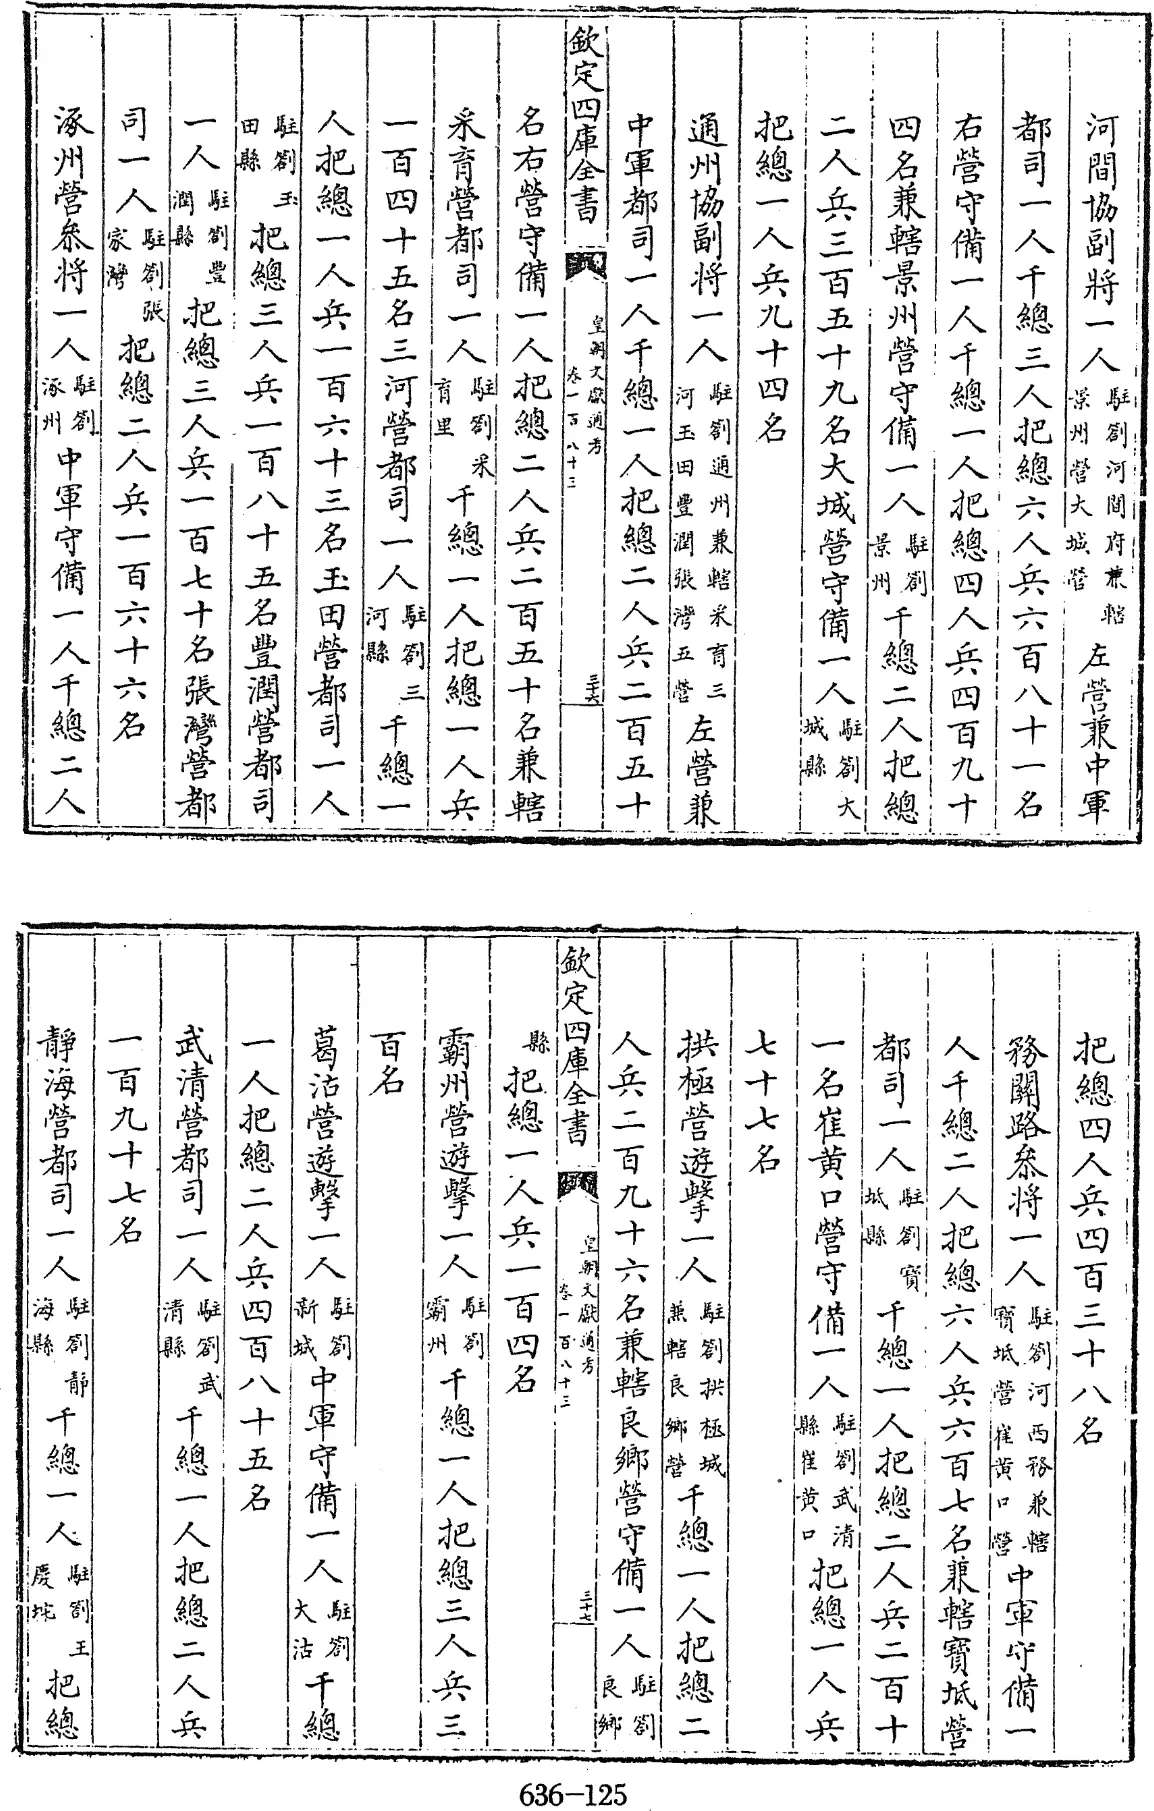 河間協副將一人駐劄河間府兼轄景州營大城營左營兼中軍
都司一人千總三人把總六人兵六百八十一名
右營守備一人千總一人把總四人兵四百九十
四名兼轄景州營守備一人駐劄景州千總二人把總
二人兵三百五十九名大城營守備一人駐劄大城縣
把總一人兵九十四名
通州協副將一人駐劄通州兼轄采育三河玉田豐潤張灣五營左營兼
中軍都司一人千總一人把總二人兵二百五十
欽定四庫全書
皇朝文獻通考
卷一百八十三
三十六
名右營守備一人把總二人兵二百五十名兼轄
采育營都司一人駐劄采育里千總一人把總一人兵
一百四十五名三河營都司一人駐劄三河縣千總一
人把總一人兵一百六十三名玉田營都司一人
駐劄玉田縣把總三人兵一百八十五名豐潤營都司
一人駐劄豐潤縣把總三人兵一百七十名張灣營都
司一人駐劄張家灣把總二人兵一百六十六名
涿州營叅將一人駐劄涿州中軍守備一人千總二人
把總四人兵四百三十八名
務關路叅將一人駐劄河西務兼轄寶坻營崔黄口營中軍守備一
人千總二人把總六人兵六百七名兼轄寶坻營
都司一人駐劄寶坻縣千總一人把總二人兵二百十
一名崔黄口營守備一人駐劄武清縣崔黄口把總一人兵
七十七名
拱極營遊擊一人駐劄拱極城兼轄良鄉營千總一人把總二
人兵二百九十六名兼轄良鄉營守備一人駐劄良鄉
欽定四庫全書
皇朝文獻通考
卷一百八十三
三十七
縣把總一人兵一百四名
霸州營遊擊一人駐劄霸州千總一人把總三人兵三
百名
葛沽營遊擊一人駐劄新城中軍守備一人駐劄大沽千總
一人把總二人兵四百八十五名
武清營都司一人駐劄武清縣千總一人把總二人兵
一百九十七名
靜海營都司一人駐劄靜海縣千總一人駐劄王慶坨把總
636-125